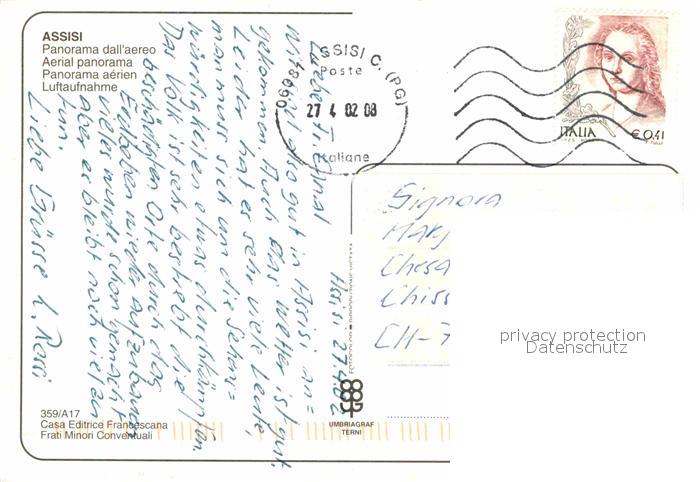 ASSISI
Panorama dall'aereo
Aerial panorama
Panorama aérien
Luftaufnahme
06081 ASSISI C. (PG)
Poste
27 4 02 08
Italiane
ITALIA
€ 0,41
Assisi 27.4.02
Wir sind also gut in Assisi an=
gekommen. Auch das Wetter ist gut.
Leider hat es sehr viele Leute,
man muss sich um die Sehens=
würdigkeiten etwas durchkämpfen.
Das Volk ist sehr bestrebt die
beschädigten Orte durch das
Erdbeben wieder aufzubauen
vieles wurde schon gemacht
aber es bleibt noch vieles zu
tun.
Liebe Grüsse L. Rossi
Signora
CH-7
privacy protection
Datenschutz
UMBRIAGRAF
TERNI
359/A17
Casa Editrice Francescana
Frati Minori Conventuali